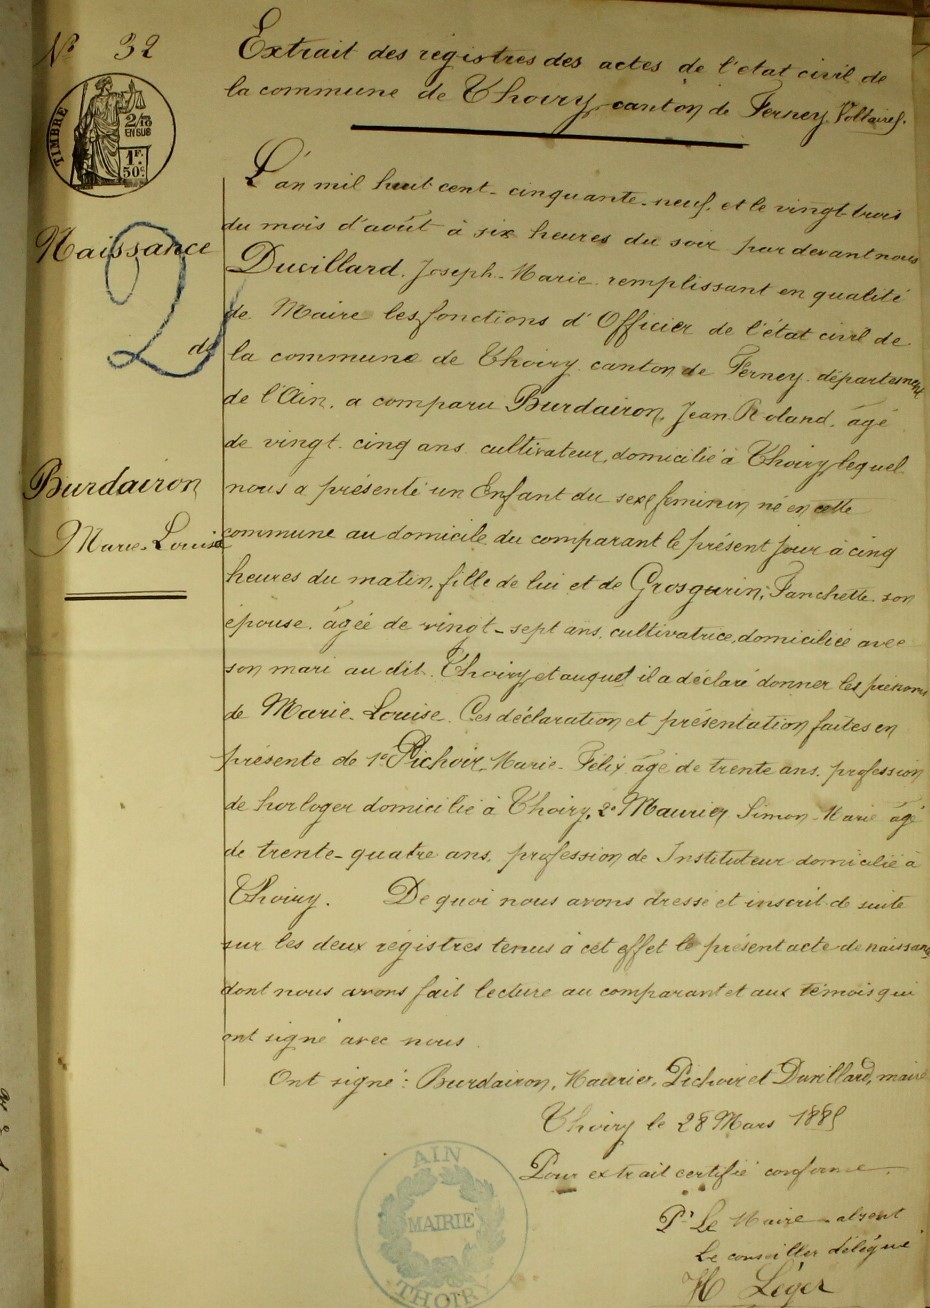 N° 32
Extrait des régistres des actes de l'état civil de
la commune de Thoiry, canton de Ferney Voltaire.
TIMBRE
2/10
EN SUB
1F.
50c
L'an mil huit cent-cinquante-neuf et le vingt-trois
du mois d'août à six heures du soir par devant nous
Naissance
2
Duvillard, Joseph-Marie remplissant en qualité
de Maire les fonctions d'Officier de l'état civil de
de
la commune de Thoiry canton de Ferney département
de l'Ain, a comparu Burdairon, Jean Roland, âgé
de vingt-cinq ans cultivateur, domicilié à Thoiry lequel
Burdairon
Marie-Louise
nous a présenté un Enfant du sexe feminin né en cette
commune au domicile du comparant le présent jour à cinq
heures du matin, fille de lui et de Grosgurin, Fanchette son
épouse, âgée de vingt-sept ans, cultivatrice, domiciliée avec
son mari au dit Thoiry, et auquel il a déclaré donner les prénoms
de Marie-Louise. Ces déclaration et présentation faites en
présente de 1° Pichoir, Marie-Félix âgé de trente ans, profession
de horloger domicilié à Thoiry, 2° Maurier Simon-Marie âgé
de trente-quatre ans, profession de Instituteur domicilié à
Thoiry. De quoi nous avons dressé et inscrit de suite
sur les deux régistres tenus à cet effet le présent acte de naissance
dont nous avons fait lecture au comparant et aux témois qui
ont signé avec nous.
Ont signé: Burdairon, Maurier, Pichoir et Duvillard, maire
Thoiry le 28 Mars 1885
Pour extrait certifié conforme.
Pr Le Maire absent
Le conseiller délégué
H Léger
AIN
MAIRIE
THOIRY